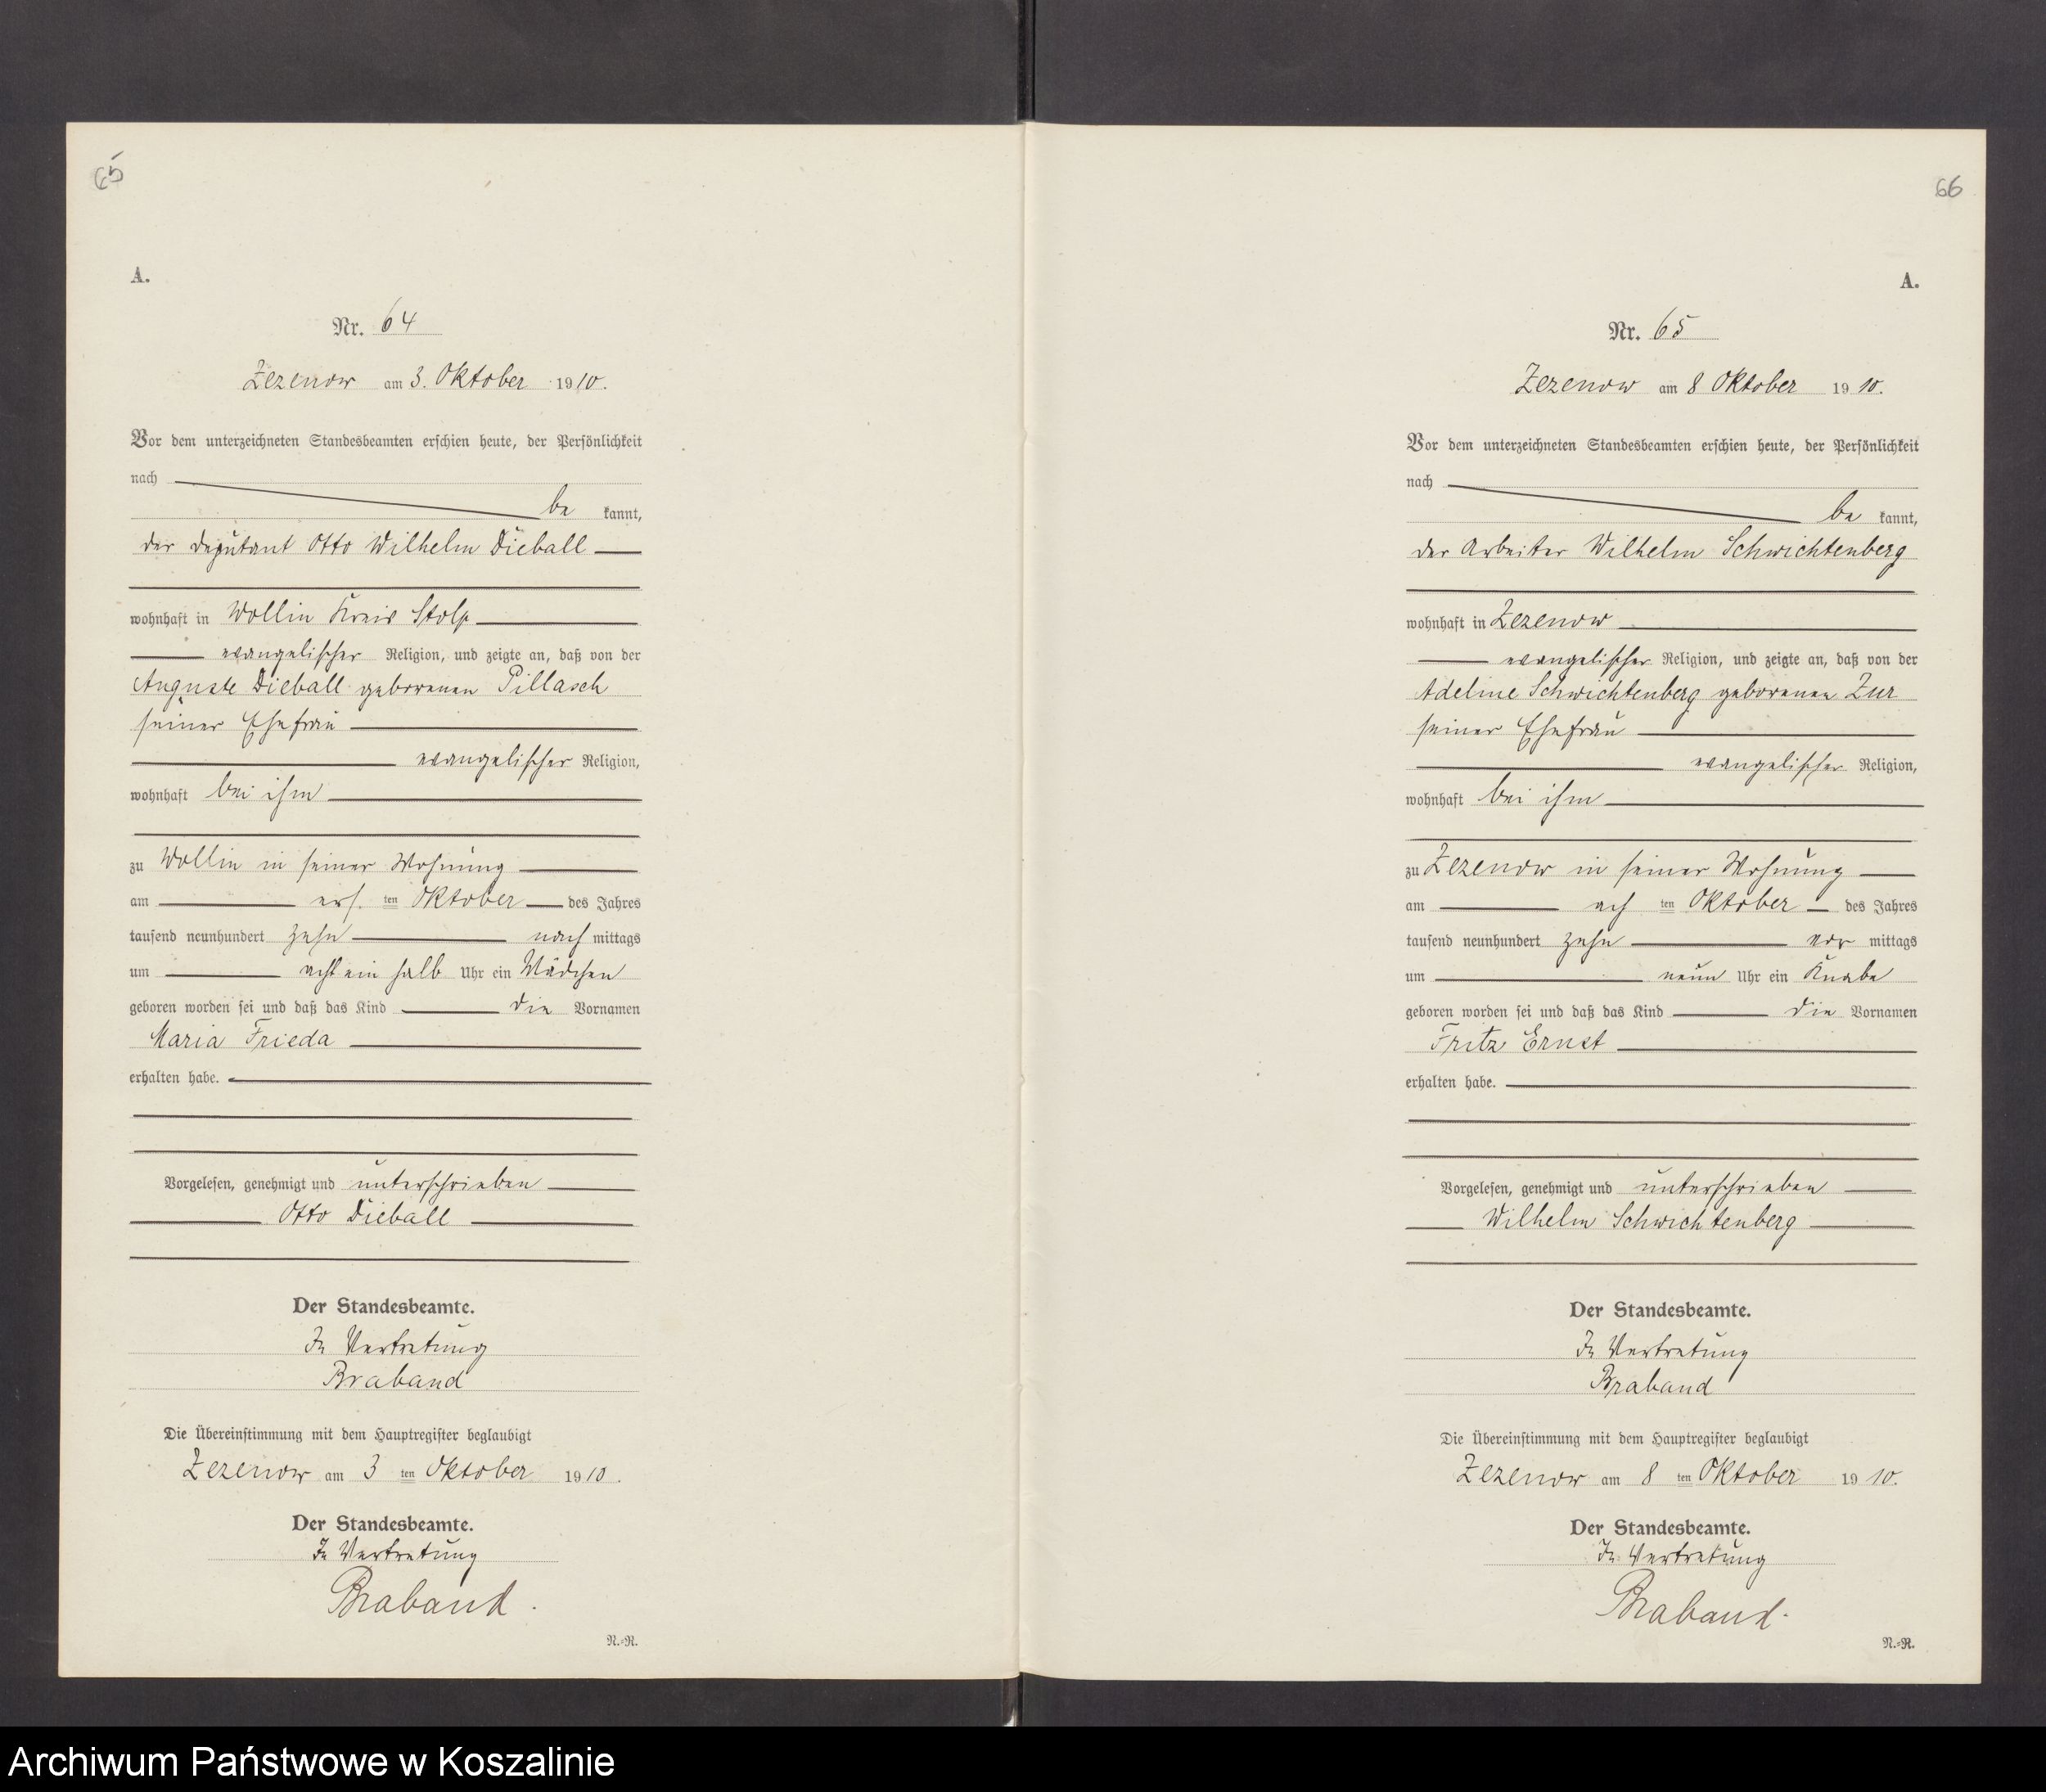 65
A.
Nr. 64
Zezenow am 3. Oktober 1910.
Vor dem unterzeichneten Standesbeamten erschien heute, der Persönlichkeit
nach
be kannt,
der Deputant Otto Wilhelm Dieball
wohnhaft in Wollin Kreis Stolp
evangelischer Religion, und zeigte an, daß von der
Auguste Dieball geborenen Pillasch
seiner Ehefrau
evangelischer Religion,
wohnhaft bei ihm
zu Wollin in seiner Wohnung
am ers. ten Oktober des Jahres
tausend neunhundert zehn nach mittags
um acht ein halb Uhr ein Mädchen
geboren worden sei und daß das Kind die Vornamen
Maria Frieda
erhalten habe.
Vorgelesen, genehmigt und unterschrieben
Otto Dieball
Der Standesbeamte.
In Vertretung
Braband
Die Übereinstimmung mit dem Hauptregister beglaubigt
Zezenow am 3 ten Oktober 1910.
Der Standesbeamte.
In Vertretung
Braband.
N.=R.
66
A.
Nr. 65
Zezenow am 8 Oktober 1910.
Vor dem unterzeichneten Standesbeamten erschien heute, der Persönlichkeit
nach
be kannt,
der Arbeiter Wilhelm Schwichtenberg
wohnhaft in Zezenow
evangelischer Religion, und zeigte an, daß von der
Adeline Schwichtenberg geborenen Zur
seiner Ehefrau
evangelischer Religion,
wohnhaft bei ihm
zu Zezenow in seiner Wohnung
am ach ten Oktober des Jahres
tausend neunhundert zehn vor mittags
um neun Uhr ein Knabe
geboren worden sei und daß das Kind die Vornamen
Fritz Ernst
erhalten habe.
Vorgelesen, genehmigt und unterschrieben
Wilhelm Schwichtenberg
Der Standesbeamte.
In Vertretung
Braband
Die Übereinstimmung mit dem Hauptregister beglaubigt
Zezenow am 8 ten Oktober 1910.
Der Standesbeamte.
In Vertretung
Braband.
N.=R.
Archiwum Państwowe w Koszalinie